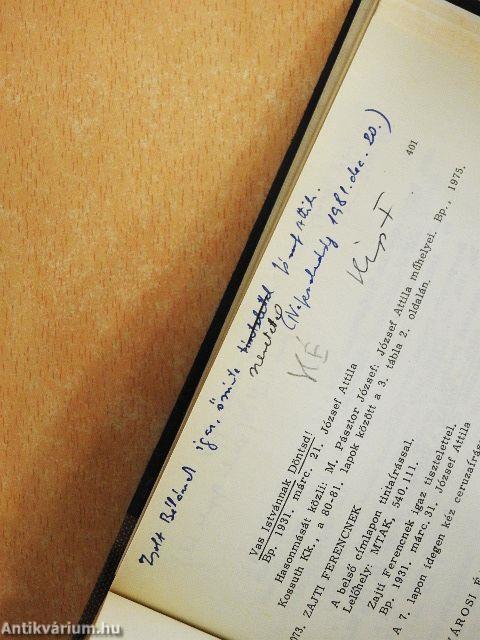 401
Zsolt Bélának igaz, őszinte tisztelettel József Attila.
szeretettel (Népszabadság 1981. dec. 20.)
KÉ Kiss F
Vas Istvánnak Döntsd!
Bp. 1931. márc. 21. József Attila
Hasonmását közli: M. Pásztor József: József Attila műhelyei. Bp., 1975.
Kossuth Kk., a 80-81. lapok között a 3. tábla 2. oldalán.
073. ZAJTI FERENCNEK
A belső címlapon tintaírással.
Lelőhely: MTAK, 540.111.
Zajti Ferencnek igaz tisztelettel.
Bp. 1931. márc. 31. József Attila
A 7. lapon idegen kéz ceruzaírás
ÁROSI É
Antikvárium.hu